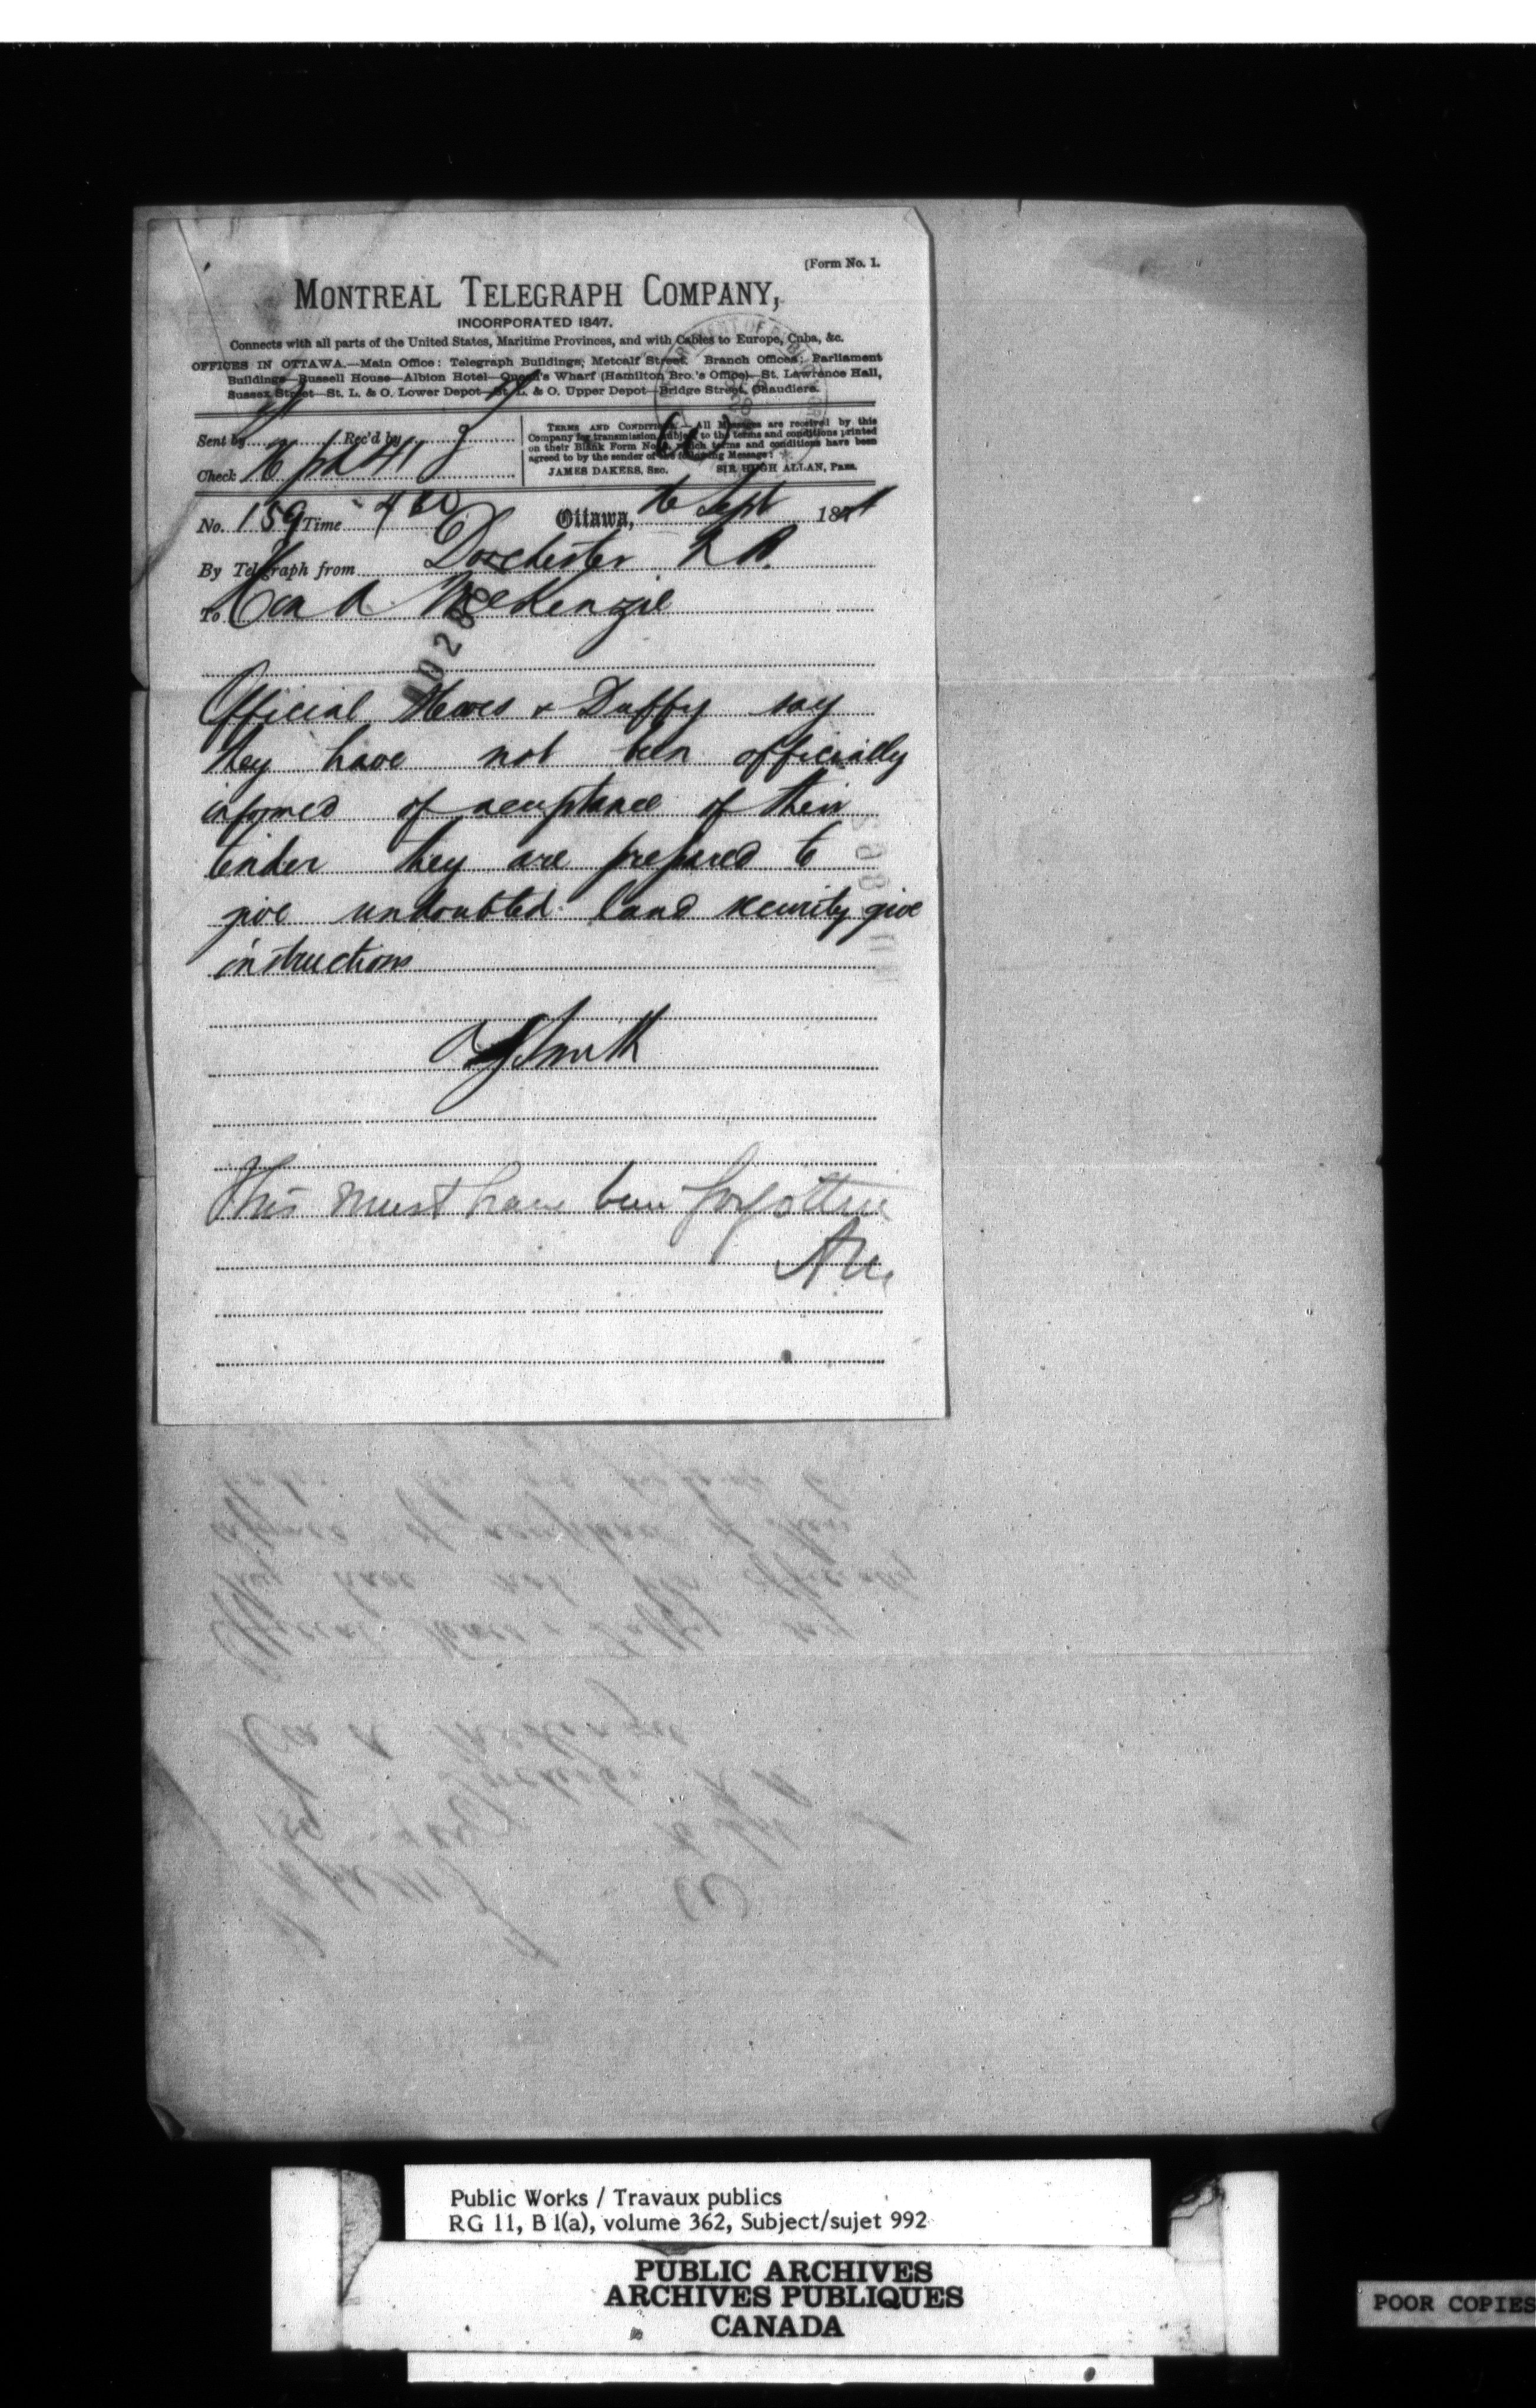 [Form No. 1.
MONTREAL TELEGRAPH COMPANY,
INCORPORATED 1847.
Connects with all parts of the United States, Maritime Provinces, and with Cables to Europe, Cuba, &c.
OFFICES IN OTTAWA.—Main Office: Telegraph Buildings, Metcalf Street. Branch Offices: Parliament
Buildings—Russell House—Albion Hotel—Queen's Wharf (Hamilton Bro.'s Office)—St. Lawrence Hall,
Sussex Street—St. L. & O. Lower Depot—St. L. & O. Upper Depot—Bridge Street, Chaudiere.
Sent by Rec'd by
Check 41
TERMS AND CONDITIONS.—All Messages are received by this
Company for transmission, subject to the terms and conditions printed
on their Blank Form No. which terms and conditions have been
agreed to by the sender of the following Message:
JAMES DAKERS, SEC. SIR HUGH ALLAN, PRES.
No. 159 Time Ottawa, Sept 187
By Telegraph from Dorchester N B.
To Hon A McKenzie
Official Hewes & Duffy say
they have not been officially
informed of acceptance of their
tender they are prepared to
give undoubted land security give
instructions
A J Smith
This must have been forgotten
Public Works / Travaux publics
RG 11, B 1(a), volume 362, Subject/sujet 992
PUBLIC ARCHIVES
ARCHIVES PUBLIQUES
CANADA
POOR COPIES